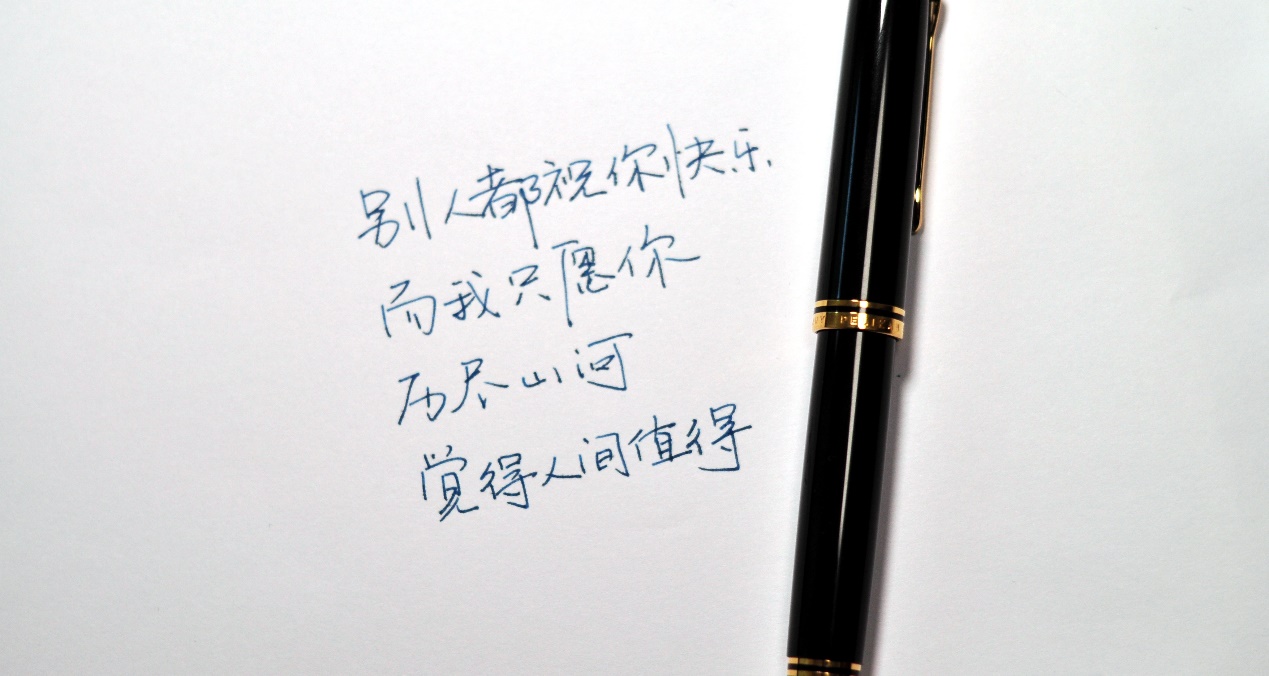 别人都祝你快乐
而我只愿你
历尽山河
觉得人间值得
PELIKAN